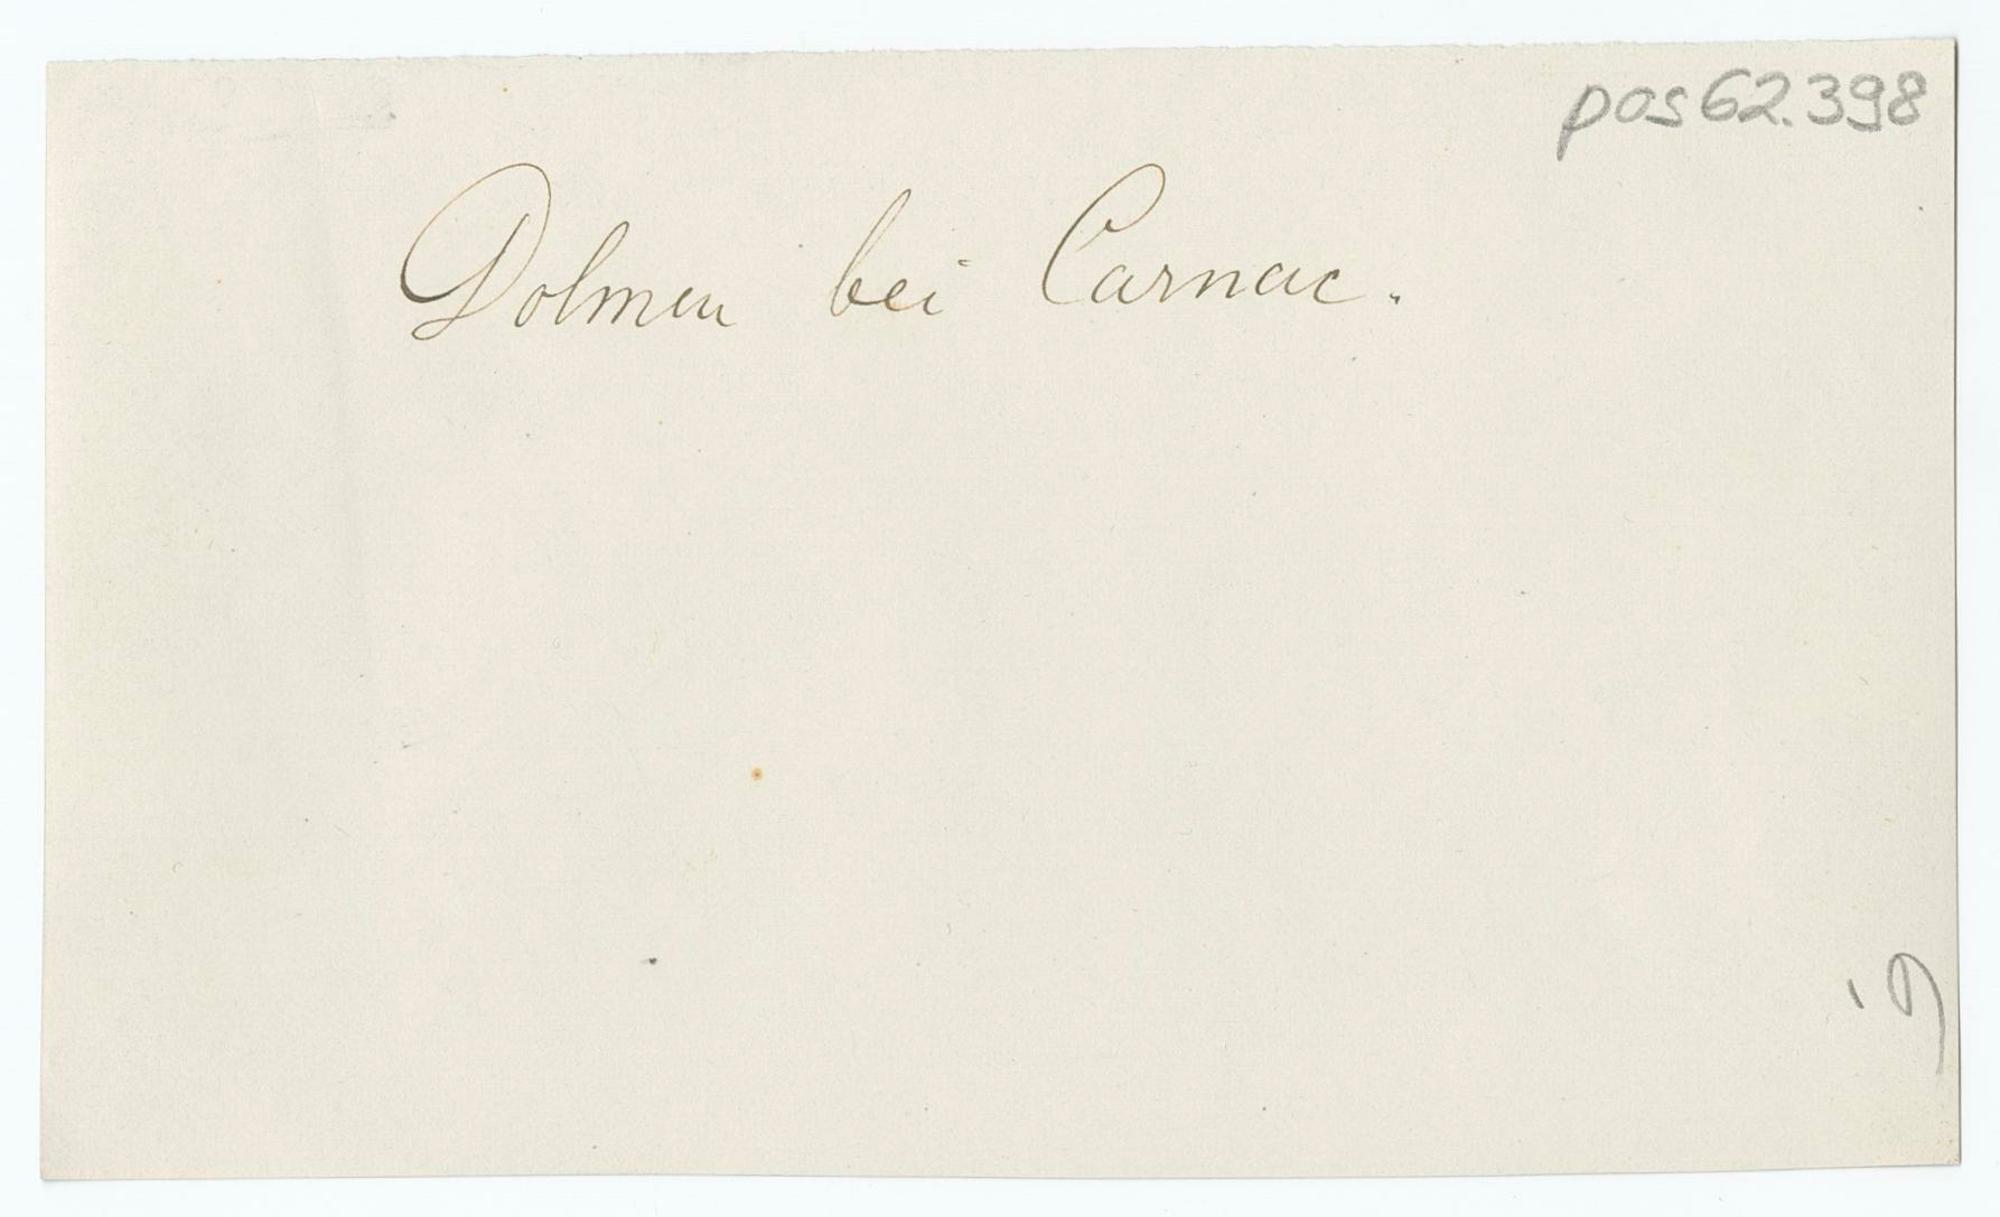 pos 62.398
Dolmen bei Carnac.